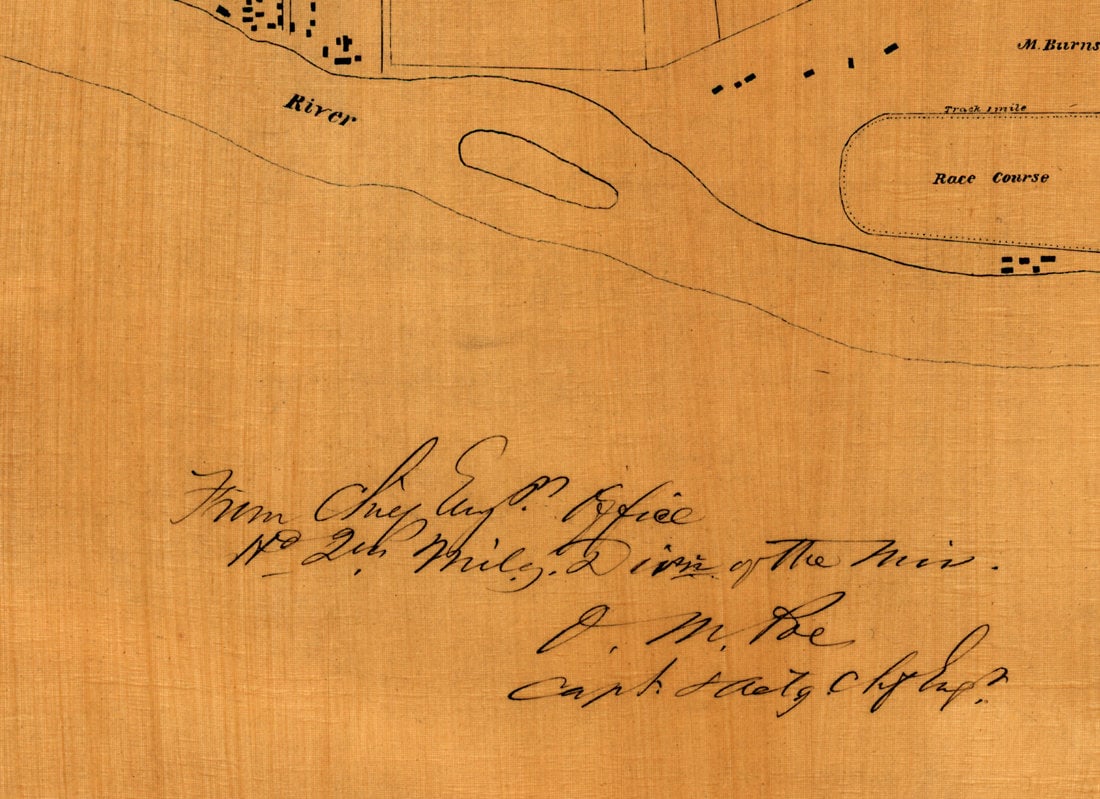 M. Burns
River
Track 1 mile
Race Course
From Chief Engrs. Office
Hd. Qrs. Mily. Divn. of the Miss.
O. M. Poe
Capt. & Actg. Chf Engr.